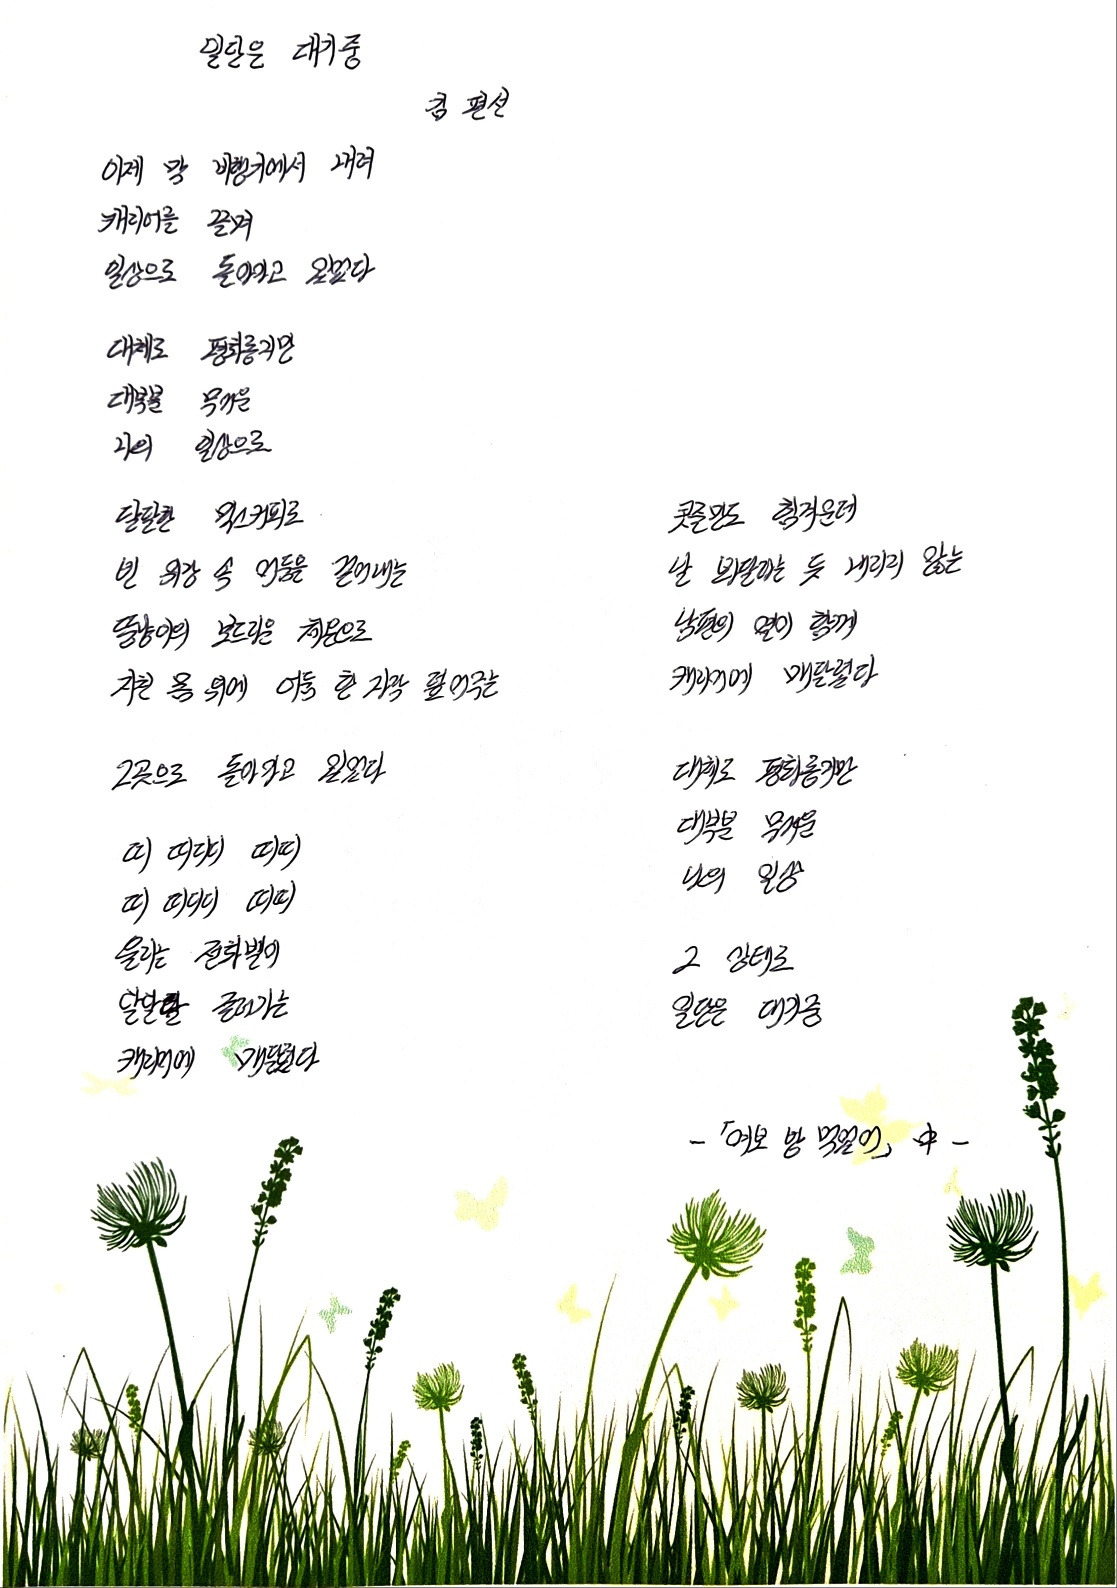 일단은 대기중
김 편선
이제 막 비행기에서 내려
캐리어를 끌며
일상으로 돌아가고 있었다
대체로 평화롭지만
대부분 무거운
나의 일상으로
달달한 믹스커피로
빈 위장 속 어둠을 끌어내는
뚱냥이의 보드라운 체온으로
지친 몸 위에 어둠 한 자락 덮어주는
그곳으로 돌아가고 있었다
띠 띠디디 띠띠
띠 띠디디 띠띠
울리는 전화벨이
달달달 굴러가는
캐리어에 매달렸다
콧줄만도 힘겨운데
날 봐달라는 듯 내리지 않는
남편의 열이 함께
캐리어에 매달렸다
대체로 평화롭지만
대부분 무거운
나의 일상
그 상태로
일단은 대기중
-「여보 밥 먹었어」 中 -